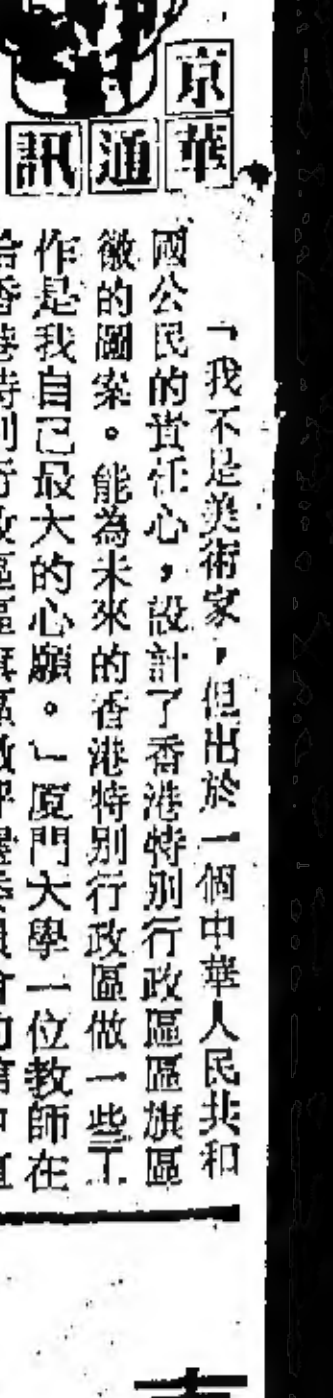 京華通訊
「我不是美術家，但出於一個中華人民共和
國公民的責任心，設計了香港特別行政區區旗區
徽的圖案。能為未來的香港特別行政區做一些工
作是我自己最大的心願。」厦門大學一位教師在